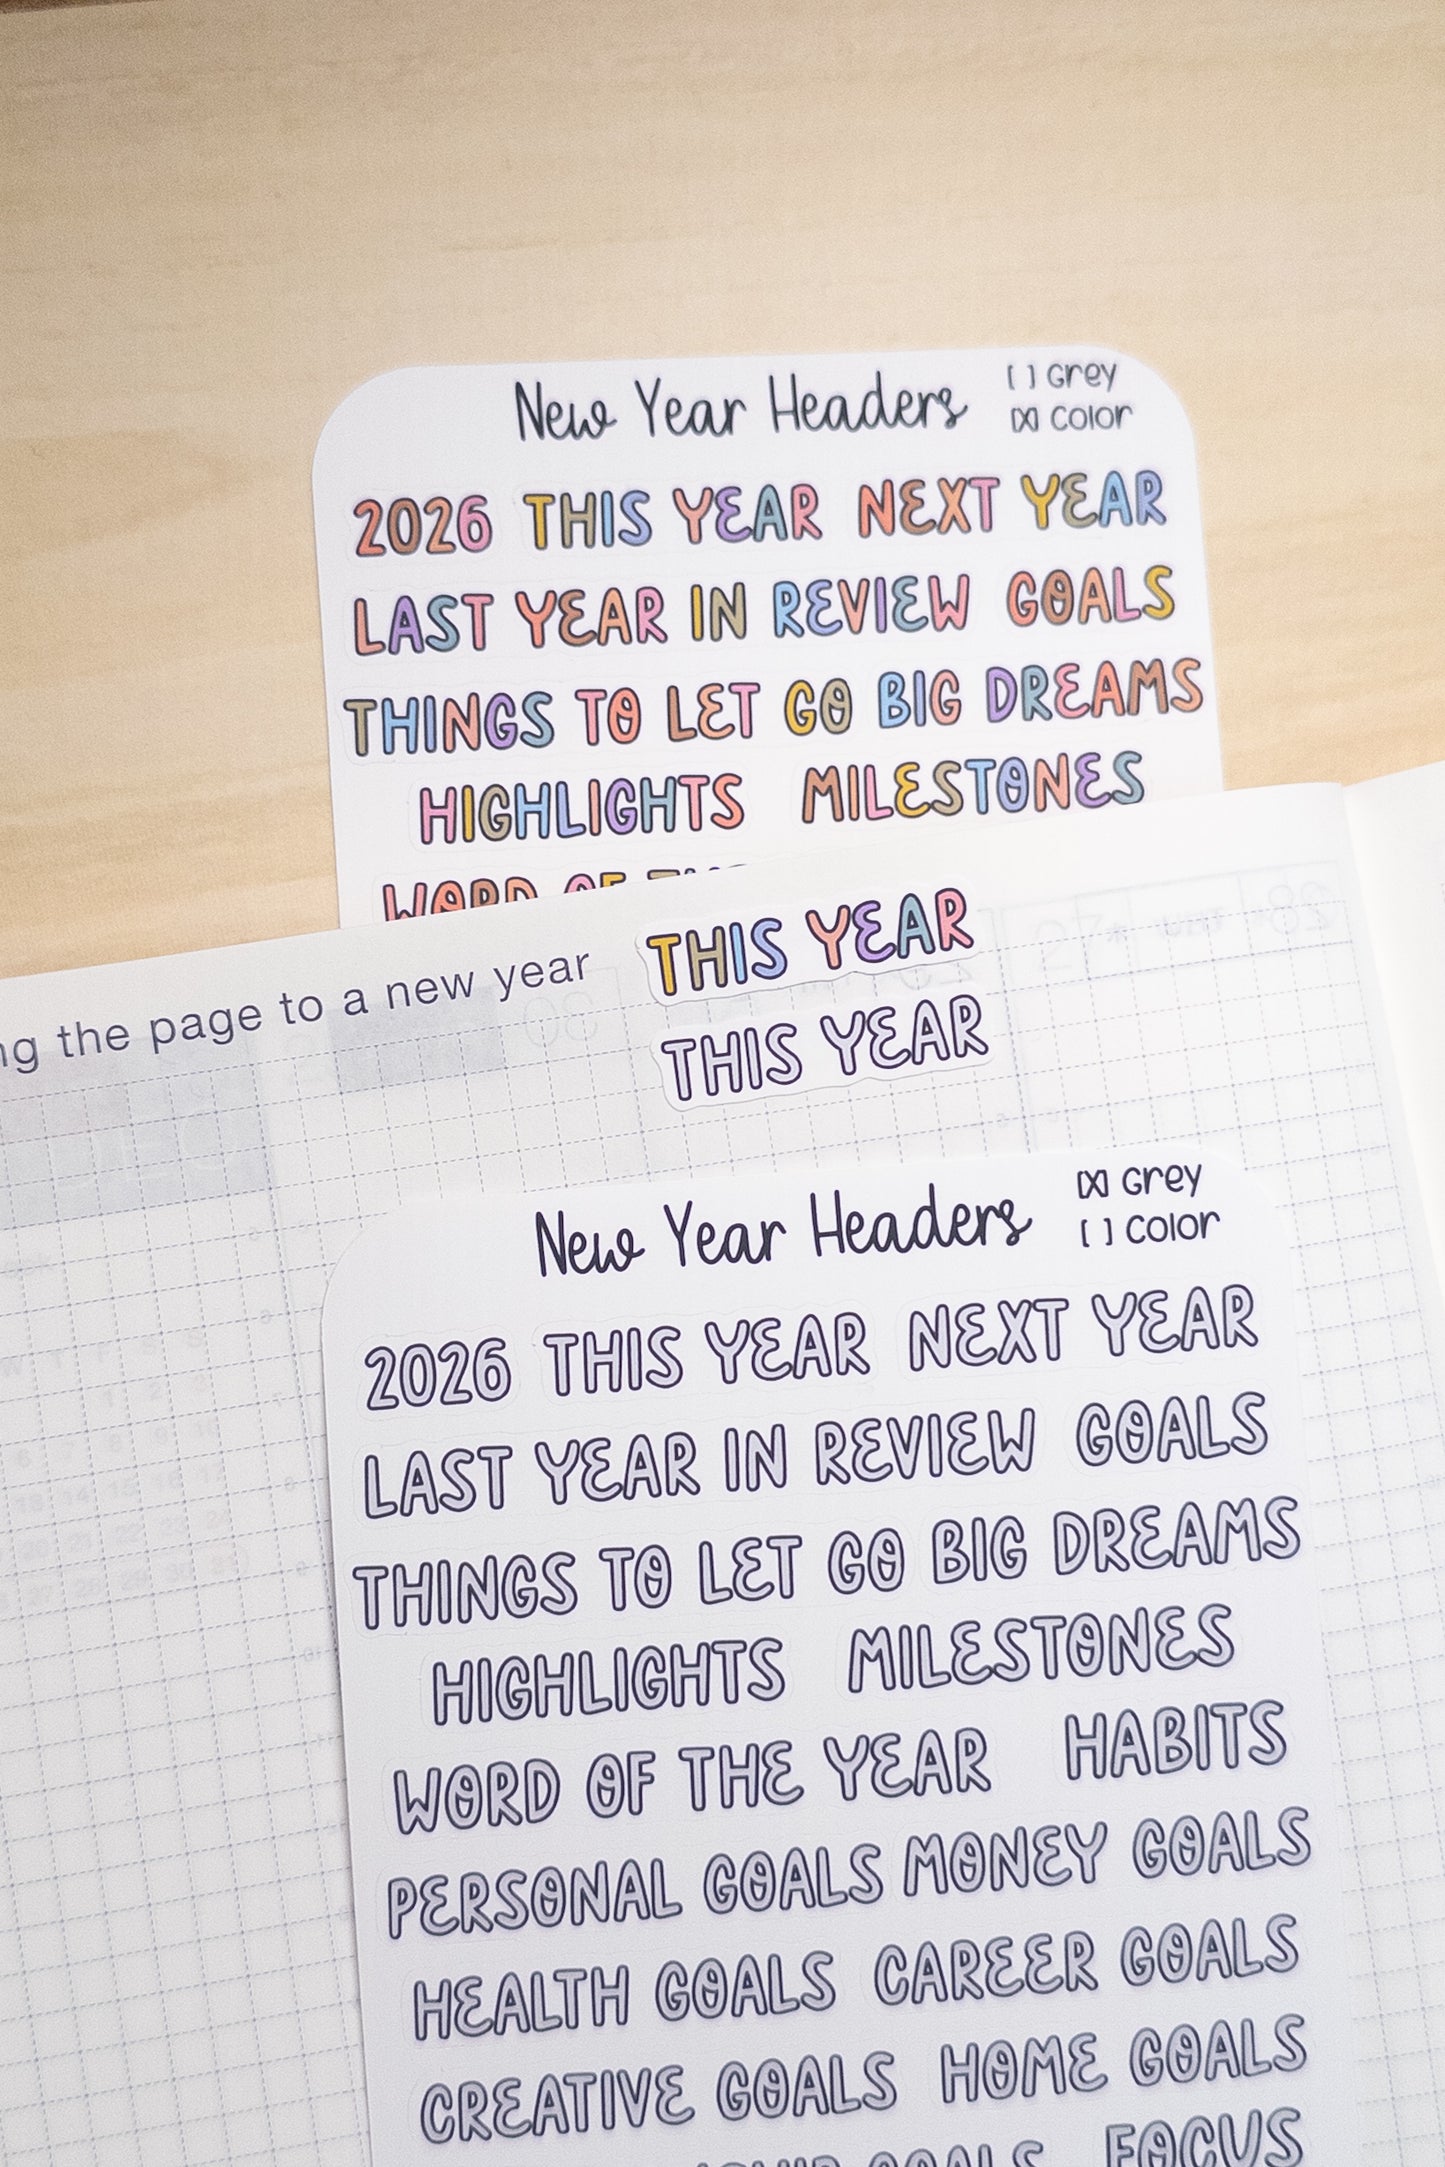 New Year Headers [ ] Grey
[X] Color
2026 THIS YEAR NEXT YEAR
LAST YEAR IN REVIEW GOALS
THINGS TO LET GO BIG DREAMS
HIGHLIGHTS MILESTONES
WORD OF
the page to a new year THIS YEAR
THIS YEAR
New Year Headers [X] Grey
[ ] Color
2026 THIS YEAR NEXT YEAR
LAST YEAR IN REVIEW GOALS
THINGS TO LET GO BIG DREAMS
HIGHLIGHTS MILESTONES
WORD OF THE YEAR HABITS
PERSONAL GOALS MONEY GOALS
HEALTH GOALS CAREER GOALS
CREATIVE GOALS HOME GOALS
GOALS FOCUS